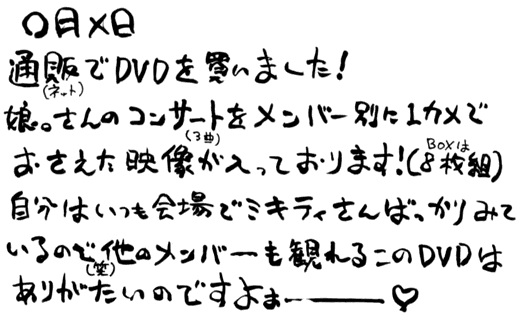 〇月×日
通販でDVDを買いました!
(ネット)
娘。さんのコンサートをメンバー別に1カメで
(3曲)
おさえた映像が入っております!(8枚組)
BOXは
自分はいつも会場でミキティさんばっかりみて
いるので他のメンバーも観れるこのDVDは
(笑)
ありがたいのですよぉー♡